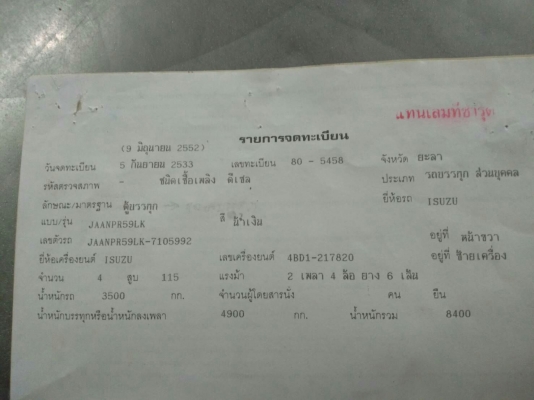 แทนเล่มที่ชำรุด
รายการจดทะเบียน
(9 มิถุนายน 2552)
วันจดทะเบียน 5 กันยายน 2533 เลขทะเบียน 80 - 5458 จังหวัด ยะลา
รหัสตรวจสภาพ - ชนิดเชื้อเพลิง ดีเซล ประเภท รถบรรทุก ส่วนบุคคล
ลักษณะ/มาตรฐาน ตู้บรรทุก ยี่ห้อรถ ISUZU
แบบ/รุ่น JAANPR59LK สี น้ำเงิน
เลขตัวรถ JAANPR59LK-7105992 อยู่ที่ หน้าขวา
ยี่ห้อเครื่องยนต์ ISUZU เลขเครื่องยนต์ 4BD1-217820 อยู่ที่ ซ้ายเครื่อง
จำนวน 4 สูบ 115 แรงม้า 2 เพลา 4 ล้อ ยาง 6 เส้น
น้ำหนักรถ 3500 กก. จำนวนผู้โดยสารนั่ง คน ยืน
น้ำหนักบรรทุกหรือน้ำหนักลงเพลา 4900 กก. น้ำหนักรวม 8400